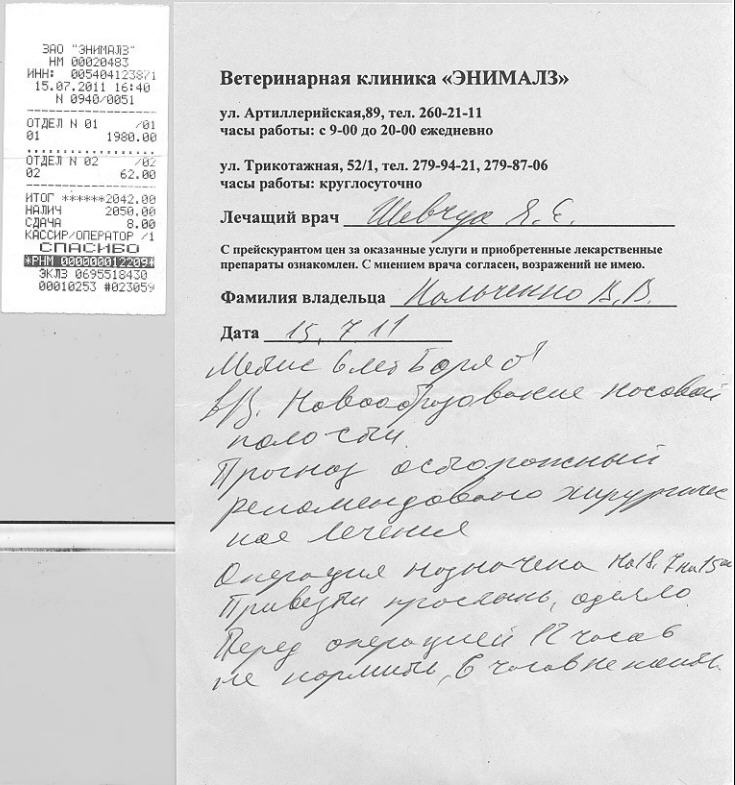 ЗАО "ЭНИМАЛЗ"
НМ 00020483
ИНН: 005404123871
15.07.2011 16:40
N 0940/0051
ОТДЕЛ N 01 /01
01 1980.00
ОТДЕЛ N 02 /02
02 62.00
ИТОГ ******2042.00
НАЛИЧ 2050.00
СДАЧА 8.00
КАССИР/ОПЕРАТОР /1
СПАСИБО
*РНМ 000000012209*
ЭКЛЗ 0695518430
00010253 #023059
Ветеринарная клиника «ЭНИМАЛЗ»
ул. Артиллерийская,89, тел. 260-21-11
часы работы: с 9-00 до 20-00 ежедневно
ул. Трикотажная, 52/1, тел. 279-94-21, 279-87-06
часы работы: круглосуточно
Лечащий врач Шевчук Я.Е.
С прейскурантом цен за оказанные услуги и приобретенные лекарственные
препараты ознакомлен. С мнением врача согласен, возражений не имею.
Фамилия владельца Кольченко В.В.
Дата 15.7.11
Метис 6 лет Боря ♂
Новообразование носовой
полости.
Прогноз осторожный
рекомендовано хирургичес
кое лечение
Операция назначена на 18.7 на 15⁰⁰
Привезти простынь, одеяло.
Перед операцией 12 часов
не кормить, 6 часов не поить.